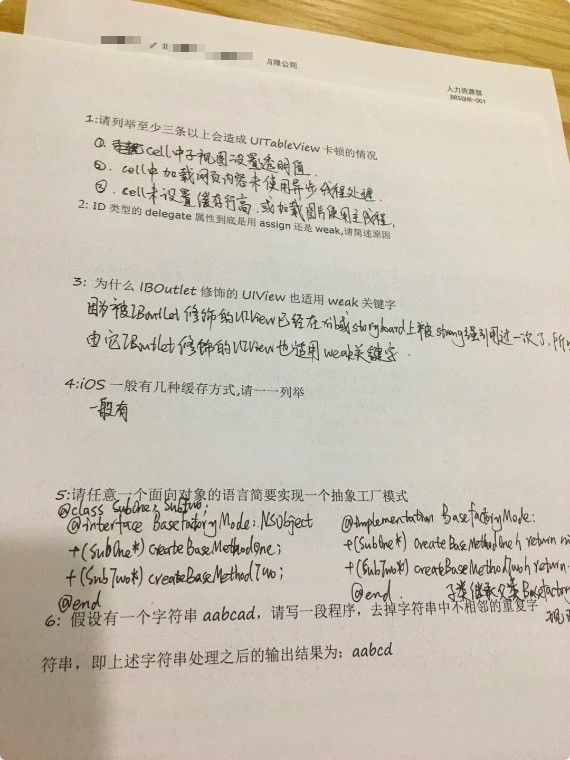 北
有限公司
人力资源部
BRSQHR-001
1:请列举至少三条以上会造成 UITableView 卡顿的情况
①. cell中子视图设置透明值.
②. cell中加载网页内容未使用异步线程处理.
③. cell未设置缓存行高.或加载图片使用主线程,
2: ID 类型的 delegate 属性到底是用 assign 还是 weak,请简述原因
3: 为什么 IBOutlet 修饰的 UIView 也适用 weak 关键字
因为被IBoutlet修饰的UIView已经在xib或storyboard上被strong强引用过一次了.所
由它IBoutlet修饰的UIView也适用weak关键字.
4:iOS 一般有几种缓存方式,请一一列举
一般有
5:请任意一个面向对象的语言简要实现一个抽象工厂模式
@class SubOne, SubTwo;
@interface BaseFactoryMode: NSObject
+(SubOne*) createBaseMethodOne;
+(SubTwo*) createBaseMethodTwo;
@end
@implementation BaseFactoryMode:
+(SubOne*) createBaseMethodOne{ return
+(SubTwo*) createBaseMethodTwo{ return
@end. 子类继承父类Basefactory
6: 假设有一个字符串 aabcad, 请写一段程序, 去掉字符串中不相邻的重复字
符串, 即上述字符串处理之后的输出结果为: aabcd